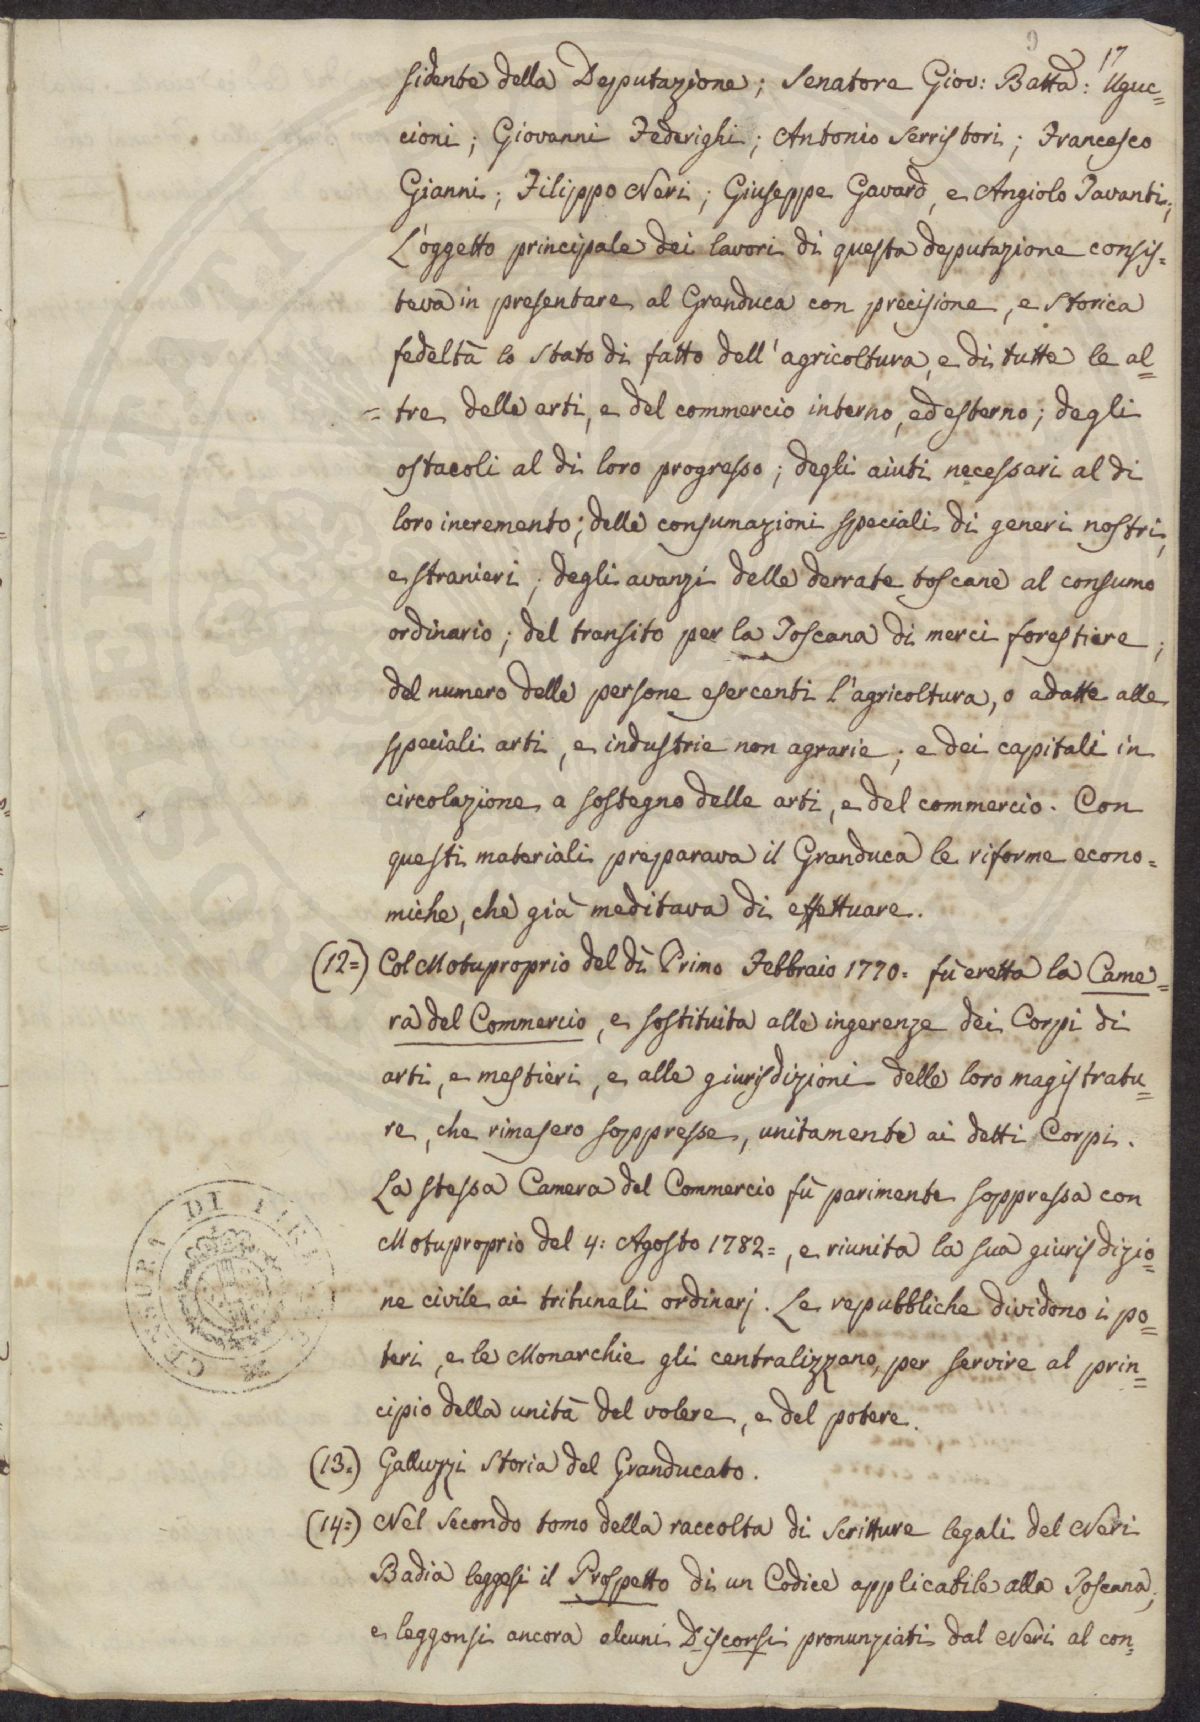 9
17
sidente della Deputazione; Senatore Giov: Batta: Uguc=
cioni; Giovanni Federighi; Antonio Serristori; Francesco
Gianni; Filippo Neri; Giuseppe Gavard, e Angiolo Tavanti;
L'oggetto principale dei lavori di questa deputazione consis=
teva in presentare al Granduca con precisione, e storica
fedeltà lo stato di fatto dell'agricoltura, e di tutte le al=
=tre delle arti, e del commercio interno, ed esterno; degli
ostacoli al di loro progresso; degli aiuti necessari al di
loro incremento; delle consumazioni speciali di generi nostri,
e stranieri; degli avanzi delle derrate toscane al consumo
ordinario; del transito per la Toscana di merci forestiere;
del numero delle persone esercenti l'agricoltura, o adatte alle
speciali arti, e industrie non agrarie; e dei capitali in
circolazione a sostegno delle arti, e del commercio. Con
questi materiali preparava il Granduca le riforme econo=
miche, che già meditava di effettuare.
(12=) Col Motuproprio del dì Primo Febbraio 1770= fù eretta la Came=
ra del Commercio, e sostituita alle ingerenze dei Corpi di
arti, e mestieri, e alle giurisdizioni delle loro magistratu=
re, che rimasero soppresse, unitamente ai detti Corpi.
La stessa Camera del Commercio fù parimente soppressa con
Motuproprio del 4: Agosto 1782=, e riunita la sua giurisdizio=
ne civile ai tribunali ordinarj. Le repubbliche dividono i po=
teri, e le Monarchie gli centralizzano, per servire al prin=
cipio della unità del volere, e del potere.
(13=) Galluzzi Storia del Granducato.
(14=) Nel secondo tomo della raccolta di Scritture legali del Neri
Badia leggesi il Prospetto di un Codice applicabile alla Toscana;
e leggonsi ancora alcuni Discorsi pronunziati dal Neri al con=
CENSURA DI